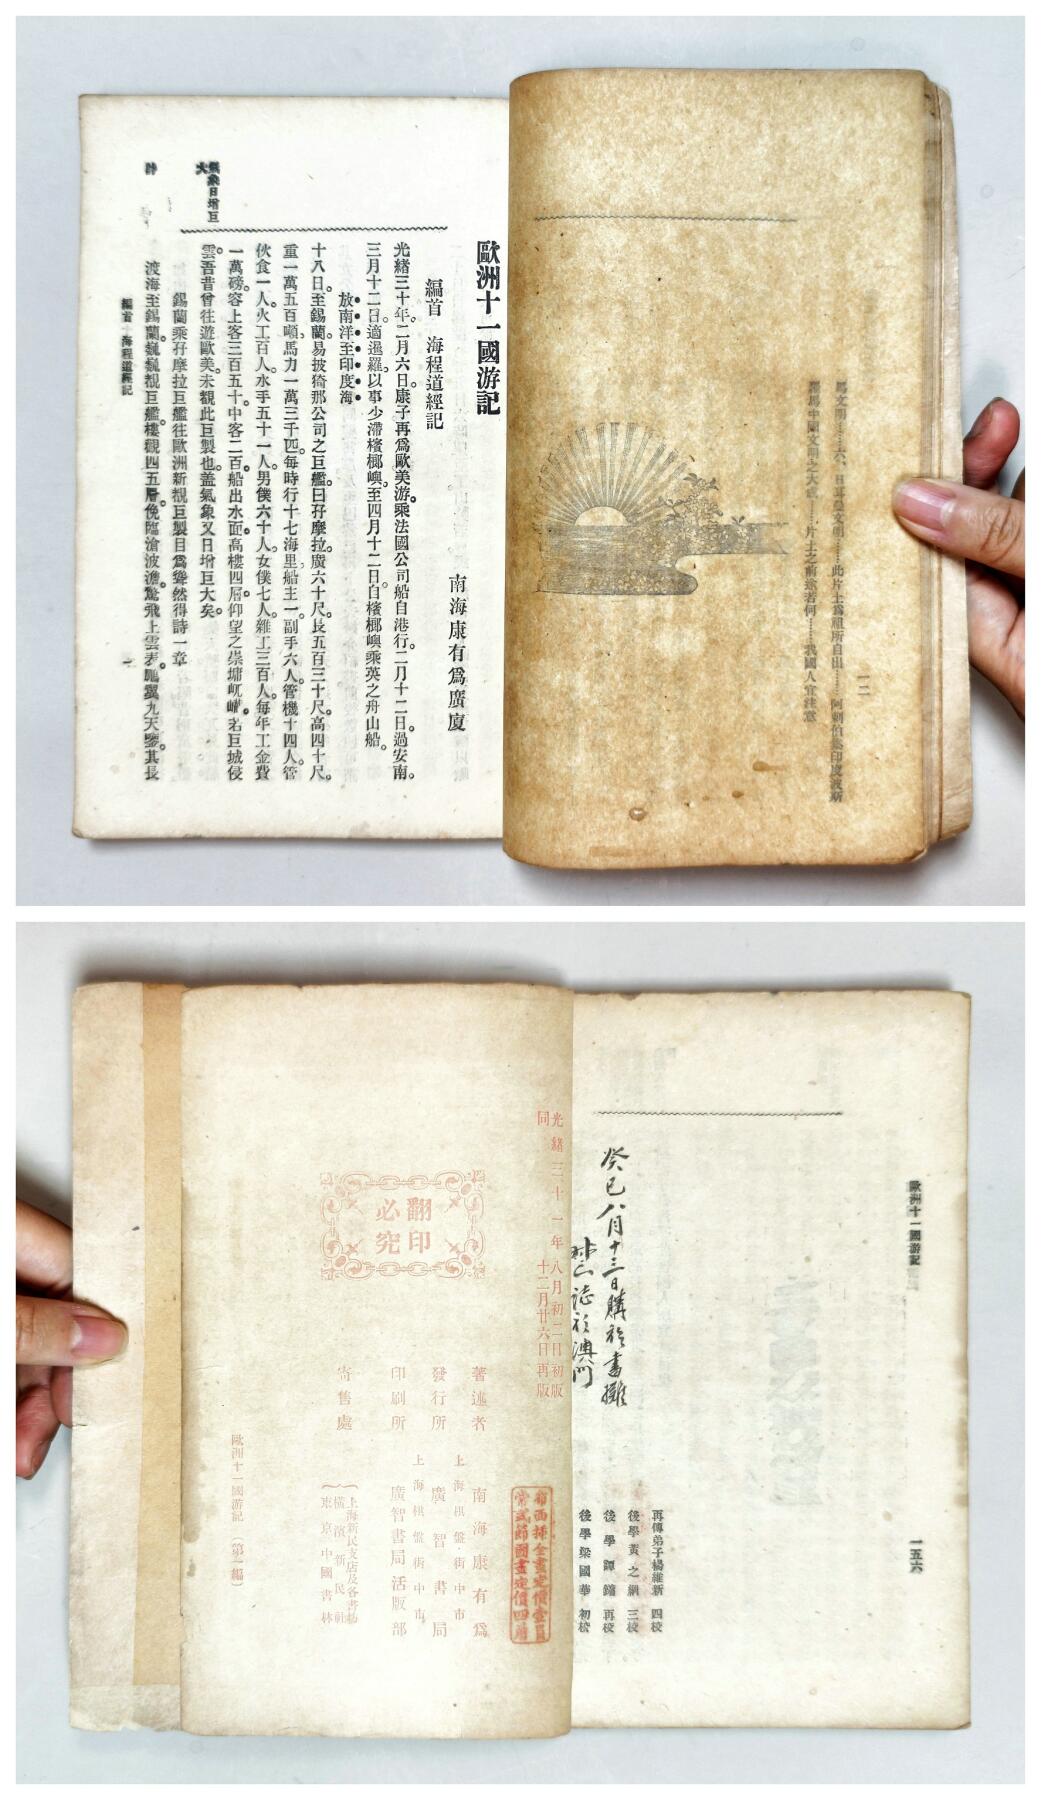 羅馬中衰文明之大
我國人宜注意
一二
歐洲十一國游記
南海康有爲廣廈
編首　海程道經記
光緒三十年二月六日。康子再爲歐美游。乘法國公司船自港行。二月十二日。過安南。
三月十二日。適暹羅。以事少滯檳榔嶼。至四月十二日。自檳榔嶼乘英之舟山船。
放南洋至印度海
十八日。至錫蘭。易披猗那公司之巨艦。曰孖摩拉。廣六十尺。長五百三十尺。高四十尺。
重一萬五百噸。馬力一萬三千匹。每時行十七海里。船主一。副手六人。管機十四人。管
伙食一人。火工百人。水手五十一人。男僕六十人。女僕七人。雜工三百人。每年工金費
一萬磅。容上客三百五十。中客二百。船出水面。高樓四層。仰望之崇墉屹嶫。若巨城侵
雲。吾昔曾往遊歐美。未觀此巨製也。蓋氣象又日增巨大矣。
氣象日增巨
大
錫蘭乘孖摩拉巨艦往歐洲新覩巨製目爲聳然得詩一章
渡海至錫蘭。巍巍覩巨艦。樓觀四五層。俛臨滄波澹。驚飛上雲表。颺翼九天鑒。其長
編首　海程道經記
一
歐洲十一國游記
一五六
再傳弟子楊維新　四校
後學黃之綱　三校
後學譚鑣　再校
後學梁國華　初校
癸巳八月十三日購於書攤
誌於澳門
光緒三十一年八月初二日初版
同　十二月廿六日再版
翻印
必究
著述者　南海康有爲
發行所　上海棋盤街中市　廣智書局
印刷所　上海棋盤街中市　廣智書局活版部
寄售處
上海新民支店及各書坊
橫濱新民社
東京中國書林
歐洲十一國游記　（第一編）
布面挿金畫定價壹員
常式節圖畫定價四角